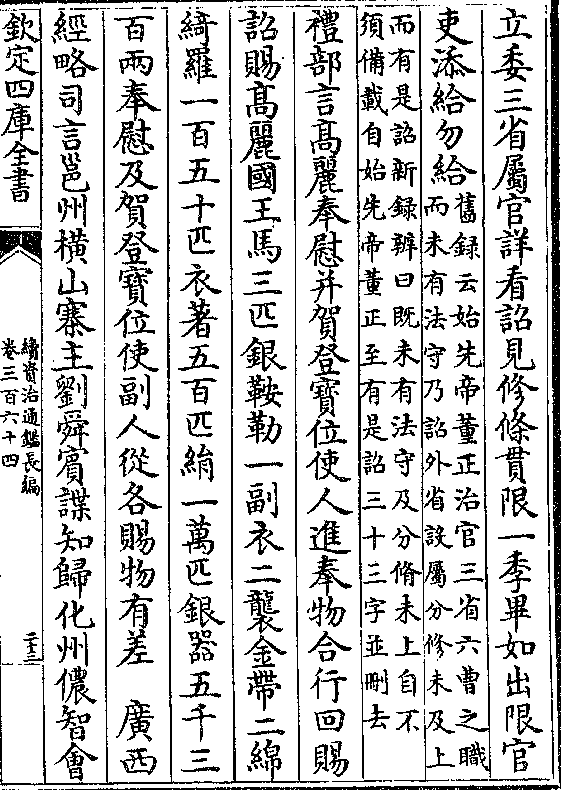 立委三省屬官詳看詔見修條貫限一季畢如出限官
吏添給勿給
舊録云始先帝董正治官三省六曹之職
而未有法守乃詔外省設屬分修未及上
而有是詔新録辨曰既未有法守及分脩未上自不
須備載自始先帝董正至有是詔三十三字並刪去
禮部言高麗奉慰并賀登寶位使人進奉物合行回賜
詔賜髙麗國王馬三匹銀鞍勒一副衣二襲金帶二綿
綺羅一百五十匹衣著五百匹絹一萬匹銀器五千三
百兩奉慰及賀登寶位使副人從各賜物有差　廣西
經略司言邕州横山寨主劉舜賓諜知歸化州儂智會
欽定四庫全書
續資治通鑑長編
卷三百六十四
二十三